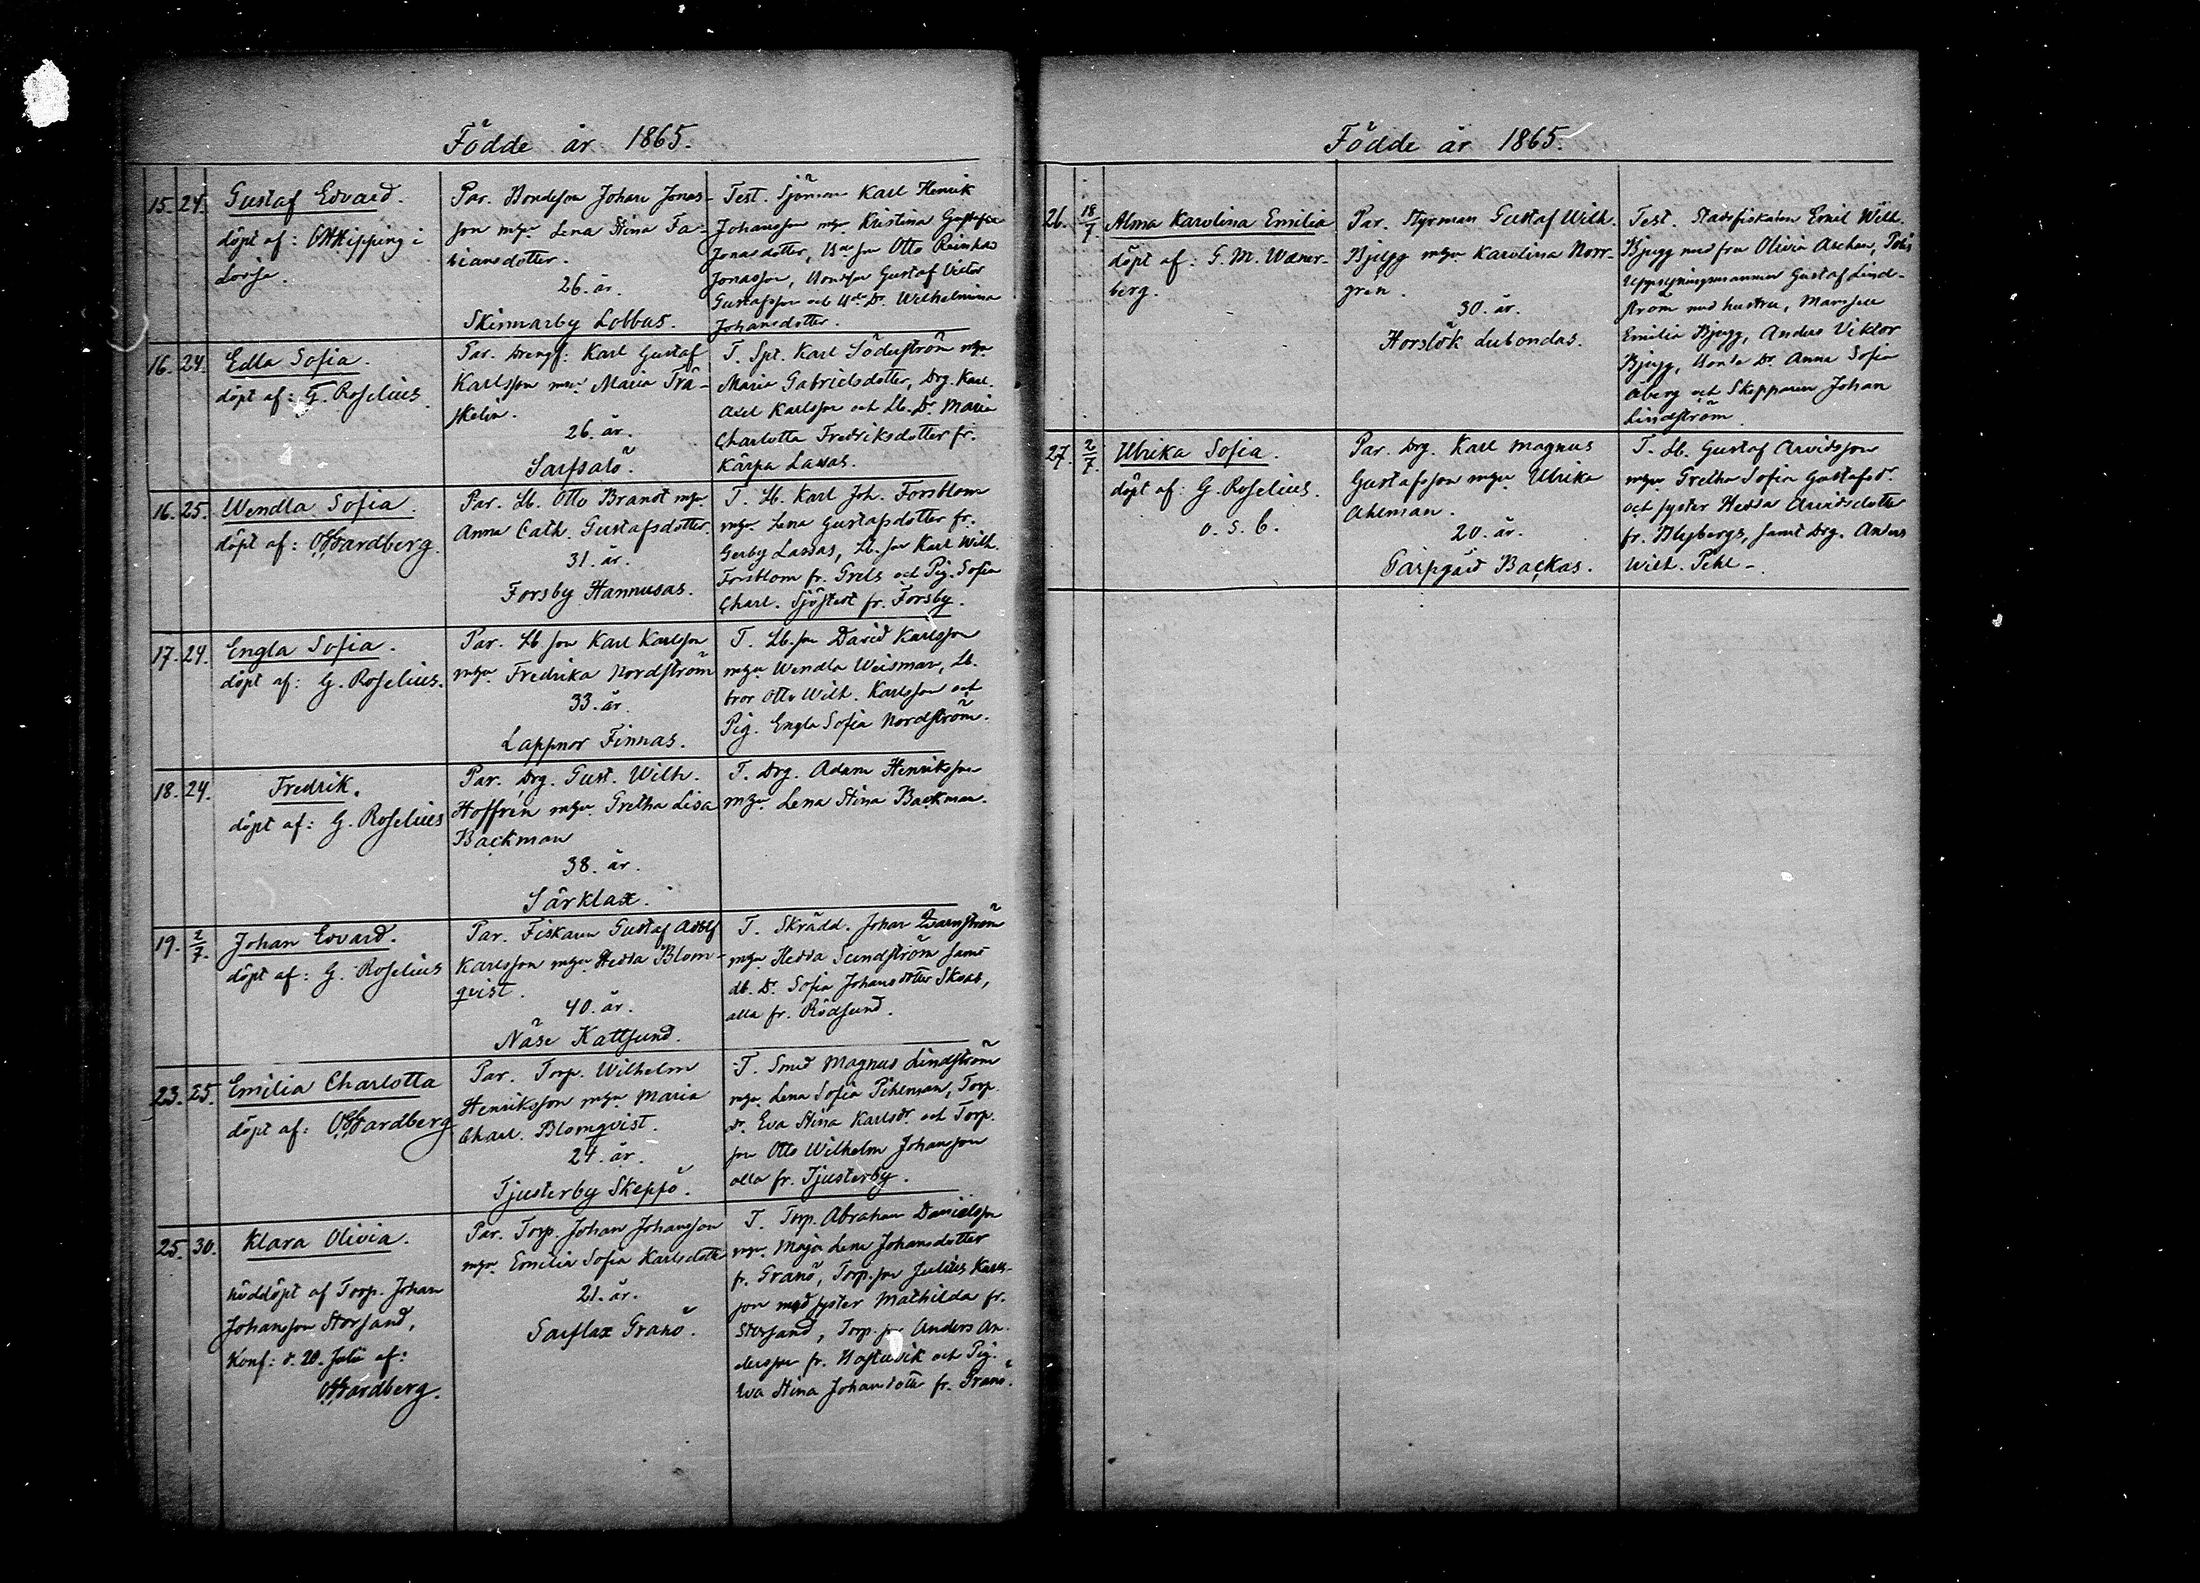 Födde år 1865.
15. 24. Gustaf Edvard.
döpt af: Hipping i
Lovisa.
Par. Bondeson Johan Jonas-
son m hu Lena Stina Fa-
biansdotter.
26. år.
Skinnarby Lobbas.
Test. Sjöman Karl Henrik
Johansson m hu Kristina Gustafva
Jonasdotter, Bde son Otto Reinhold
Jonasson, Bondson Gustaf Victor
Gustafsson och Bde Dr Wilhelmina
Johansdotter.
16. 24. Edla Sofia.
döpt af: G. Roselius.
Par. Drengs: Karl Gustaf
Karlsson m hu Maria Trä-
skelin.
26. år.
Sarfsalö.
T. Spt. Karl Söderström m hu
Maria Gabrielsdotter, Drg. Karl
Axel Karlsson och Lb. Dr Maria
Charlotta Fredriksdotter fr.
Kärpa Lassas.
16. 25. Wendla Sofia.
döpt af: Wardberg.
Par. Lb. Otto Brandt m hu
Anna Cath. Gustafsdotter.
31. år.
Forsby Hannusas.
T. Lb. Karl Joh. Forsblom
m hu Lena Gustafsdotter fr.
Gerby Lassas, Lb. son Karl Wilh.
Forsblom fr. Grels och Pig. Sofia
Charl. Sjöstedt fr. Forsby.
17. 24. Engla Sofia.
döpt af: G. Roselius.
Par. Lb son Karl Karlsson
m hu Fredrika Nordström
33. år.
Lappnor Finnas.
T. Lb. son David Karlsson
m hu Wendla Weisman, Lb.
bror Otto Wilh. Karlsson och
Pig. Engla Sofia Nordström.
18. 24. Fredrik.
döpt af: G. Roselius
Par. Drg. Gust. Wilh.
Hoffrén m hu Gretha Lisa
Backman
38. år.
Särklax.
T. Drg. Adam Henriksson
m hu Lena Stina Backman.
19. 2/7. Johan Edvard.
döpt af: G. Roselius
Par. Fiskaren Gustaf Adolf
Karlsson m hu Hedda Blom-
qvist.
40. år.
Näse Kattsund.
T. Skrädd. Johan Qvarnström
m hu Hedda Sundström samt
db. Dr. Sofia Johansdotter Skoas,
alla fr. Rödsund.
23. 25. Emilia Charlotta
döpt af: Wardberg
Par. Torp. Wilhelm
Henriksson m hu Maria
Charl. Blomqvist.
24. år.
Tjusterby Skeppö.
T. Smed Magnus Lindström
m hu Lena Sofia Pihlman, Torp.
dr. Eva Stina Karlsdr och Torp.
son Otto Wilhelm Johansson
alla fr. Tjusterby.
25. 30. Klara Olivia.
nöddöpt af Torp. Johan
Johansson Storsand,
Konf: d. 20. Juli af:
Wardberg.
Par. Torp. Johan Johansson
m hu Emilia Sofia Karlsdotter
21. år.
Sarflax Granö.
T. Torp. Abraham Danielsson
m hu Maja Lena Johansdotter
fr. Granö, Torp. son Julius Karls-
son med syster Mathilda fr.
Storsand, Torp. son Anders An-
dersson fr. Hastuvik och Pig.
Eva Stina Johansdotter fr. Granö.
Födde år 1865.
26. 18/7. Alma Karolina Emilia
döpt af: G. M. Waener-
berg.
Par. Styrman Gustaf Wilh.
Bjugg m hu Karolina Norr-
gren.
30. år.
Horslök Lubondas.
Test. Stadsfiskalen Emil Wilh.
Bjugg med fru Olivia Aschan, Polis
Uppsyningsmannen Gustaf Lind-
ström med hustru, Mamsell
Emilia Bjugg, Anders Viktor
Bjugg, Bonde Dr. Anna Sofia
Åberg och Skepparen Johan
Lindström.
27. 2/7. Ulrika Sofia.
döpt af: G. Roselius.
o. s. b.
Par. Drg. Karl Magnus
Gustafsson m hu Ulrika
Ahlman.
20. år.
Garpgård Backas.
T. Lb. Gustaf Arvidsson
m hu Gretha Sofia Gustafsdr.
och syster Hedda Arvidsdotter
fr. Blybergs, samt Drg. Anders
Wilh. Pehl-.